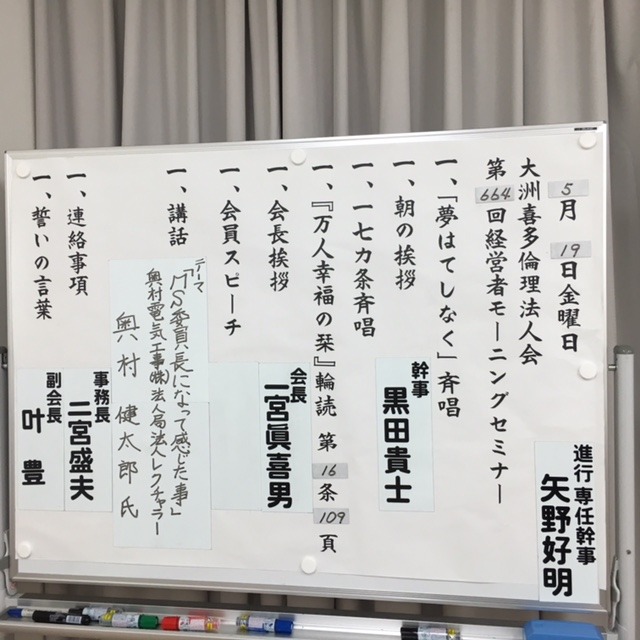 5月19日金曜日
大洲喜多倫理法人会
第664回経営者モーニングセミナー
進行 専任幹事
矢野好明
一、「夢はてしなく」斉唱
一、朝の挨拶
幹事
黒田貴士
一、一七カ条斉唱
一、『万人幸福の栞』輪読 第16条109頁
一、会長挨拶
会長
一宮眞喜男
一、会員スピーチ
一、講話
テーマ
「MS委員長になって感じた事」
奥村電気工事㈱ 法人局法人レクチャラー
奥村 健太郎 氏
一、連絡事項
事務長
二宮盛夫
一、誓いの言葉
副会長
叶 豊